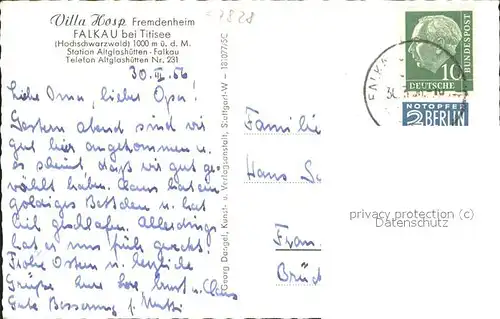 Villa Hosp Fremdenheim
FALKAU bei Titisee
(Hochschwarzwald) 1000 m ü. d. M.
Station Altglashütten - Falkau
Telefon Altglashütten Nr. 231
30. III. 56
Liebe Oma, lieber Opa!
Gestern abend sind wir
gut hier angekommen u.
es scheint, daß wir gut ge-
wählt haben. Claus hat ein
goldiges Bettchen u. hat
tief geschlafen. Allerdings
hat es uns früh geweckt.
Frohe Ostern u. herzliche
Grüße Eure u. Claus
Gute Besserung f. Mutti
Georg Dangel, Kunst- u. Verlagsanstalt, Stuttgart-W - 181077/5C
Familie
Hans
Fran
Brück
10
DEUTSCHE
BUNDESPOST
NOTOPFER
2 BERLIN
FALKA
privacy protection (c)
Zustellvermerk